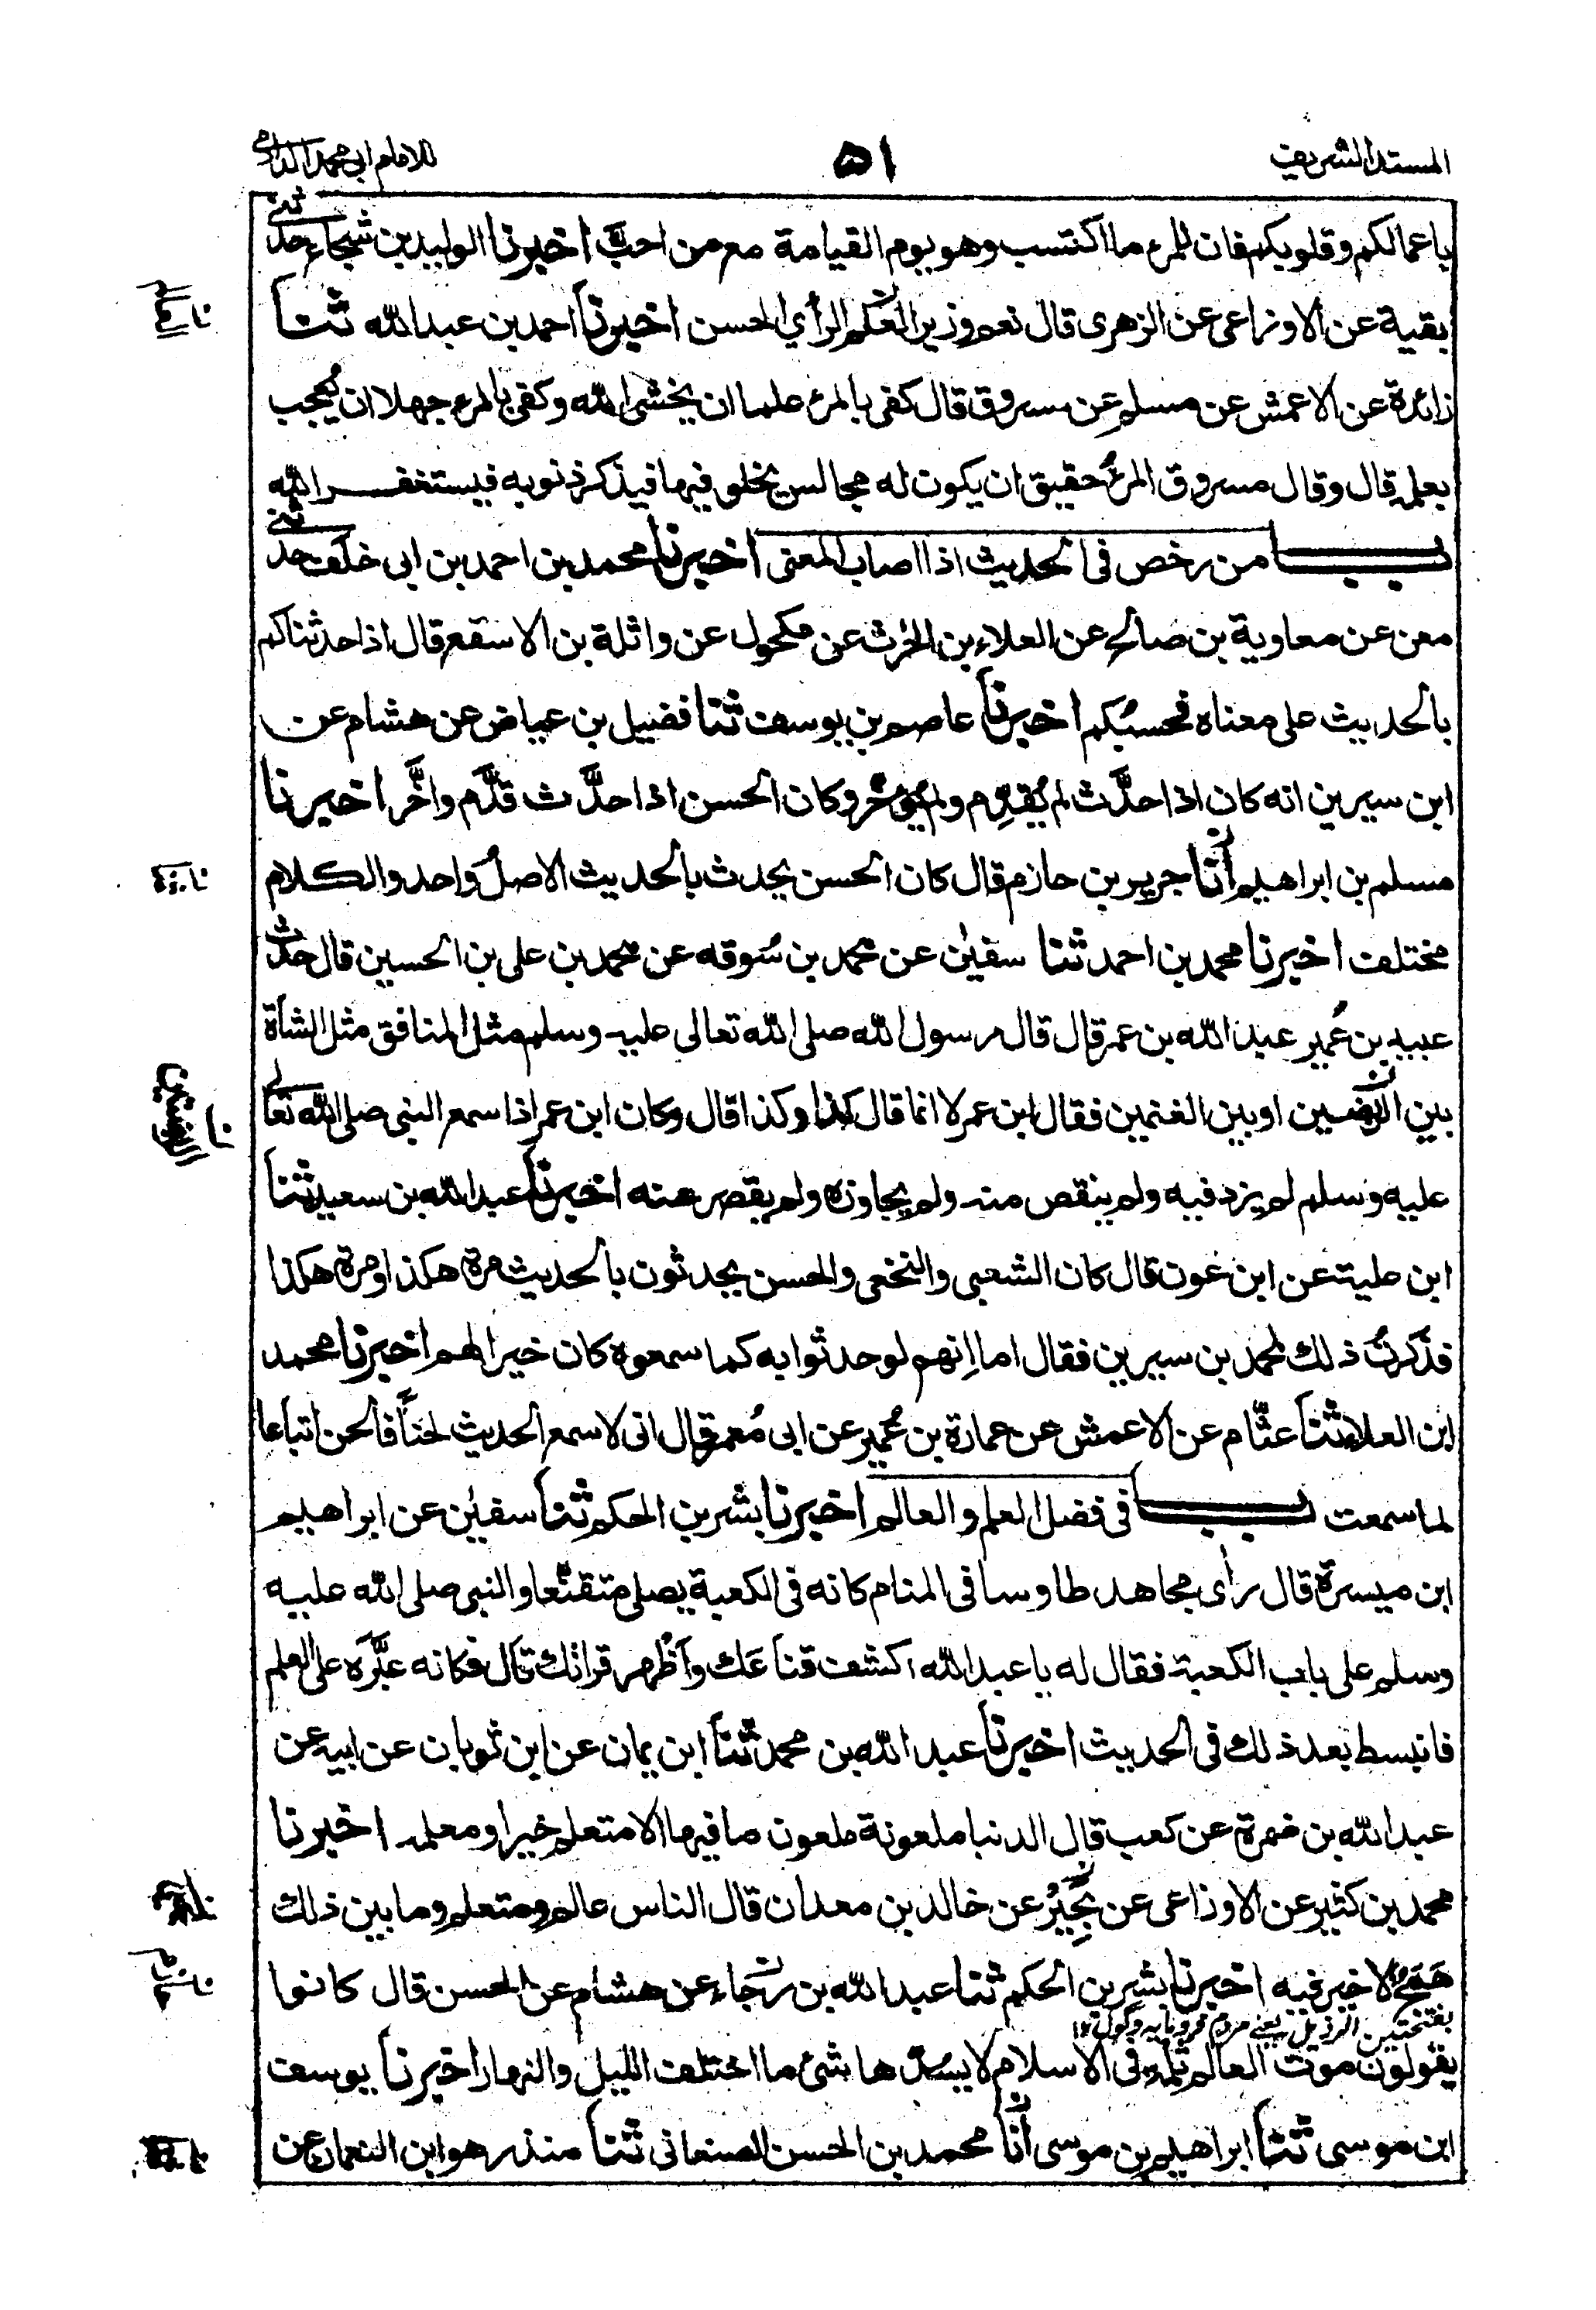 المسند الشريف ٥١ للامام ابي محمد الدارمي
باعمالكم وقلوبكم فان للمرء ما اكتسب وهو يوم القيامة مع من احبَّ اخبرنا الوليد بن شجاع حدثني
بقية عن الاوزاعى عن الزهرى قال نعم وزير العلم الرأي الحسن اخبرنا احمد بن عبد الله ثنا
زائدة عن الاعمش عن مسلم عن مسروق قال كفى بالمرء علما ان يخشى الله وكفى بالمرء جهلا ان يُعجب
بعلمه قال وقال مسروق المرءُ حقيق ان يكون له مجالس يخلو فيها فيذكر ذنوبه فيستغفر الله
باب من رخص فى الحديث اذا اصاب المعنى اخبرنا محمد بن احمد بن ابى خلف حدثني
معن عن معاوية بن صالح عن العلاء بن الحٰرث عن مكحول عن واثلة بن الاسقع قال اذا حدثناكم
بالحديث على معناه فحسبُكم اخبرنا عاصم بن يوسف ثنا فضيل بن عياض عن هشام عن
ابن سيرين انه كان اذا حدَّث لم يُقدِّم ولم يُؤخِّر وكان الحسن اذا حدَّث قدَّم واخَّر اخبرنا
مسلم بن ابراهيم أنا جرير بن حازم قال كان الحسن يحدث بالحديث الاصلُ واحد والكلام
مختلف اخبرنا محمد بن احمد ثنا سفيٰن عن محمد بن سُوقه عن محمد بن على بن الحسين قال حدث
عبيد بن عُمير عبد الله بن عمر قال قال رسول الله صلى الله تعالى عليه وسلم مثل المنافق مثل الشاة
بين الربضين او بين الغنمين فقال ابن عمر لا انما قال كذا وكذا قال وكان ابن عمر اذا سمع النبى صلى الله تعالى
عليه وسلم لم يزد فيه ولم ينقص منه ولم يجاوزه ولم يقصر عنه اخبرنا عبد الله بن سعيد ثنا
ابن علية عن ابن عون قال كان الشعبى والنخعى والحسن يحدثون بالحديث مرة هكذا ومرة هكذا
فذكرتُ ذلك لمحمد بن سيرين فقال اما اِنهم لو حدثوا به كما سمعوه كان خيرا لهم اخبرنا محمد
ابن العلاء ثنا عثّام عن الاعمش عن عمارة بن عُمير عن ابى مُعمر قال انى لاسمع الحديث لحناً فألحن اتباعا
لما سمعت باب فى فضل العلم والعالم اخبرنا بشر بن الحكم ثنا سفيٰن عن ابراهيم
ابن ميسرة قال رأى مجاهد طاوسا فى المنام كانه فى الكعبة يصلى متقنّعا والنبى صلى الله عليه
وسلم على باب الكعبة فقال له يا عبد الله اكشف قناعَك وأظهر قراتك قال فكانه عبَّره على العلم
فانبسط بعد ذلك فى الحديث اخبرنا عبد الله بن محمد ثنا ابن يمان عن ابن ثوبان عن ابيه عن
عبد الله بن ضمرة عن كعب قال الدنيا ملعونة ملعون ما فيها الا متعلم خيرا ومعلمه اخبرنا
محمد بن كثير عن الاوزاعى عن بَحِيْر عن خالد بن معدان قال الناس عالم ومتعلم وما بين ذلك
هَمَجٌ لا خير فيه اخبرنا بشر بن الحكم ثنا عبد الله بن رجاء عن هشام عن الحسن قال كانوا
بفتحتين الرذيل يعنے مردم فرومايه وگول ١٢
يقولون موت العالم ثلمة فى الاسلام لا يسدّها شئ ما اختلف الليل والنهار اخبرنا يوسف
ابن موسى ثنا ابراهيم بن موسى أنا محمد بن الحسن الصنعانى ثنا منذر هو ابن النعمان عن